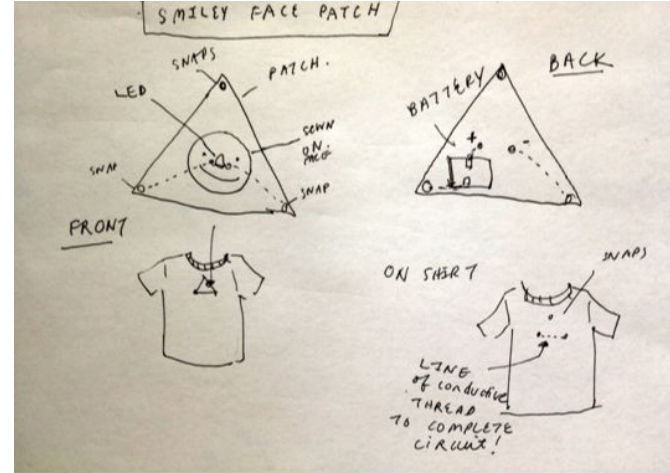 SMILEY FACE PATCH
SNAPS
PATCH.
LED
SEWN
ON
FACE
SNAP
SNAP
FRONT
BACK
BATTERY
+
-
ON SHIRT
SNAPS
LINE
of conductive
THREAD
TO COMPLETE
CIRCUIT!